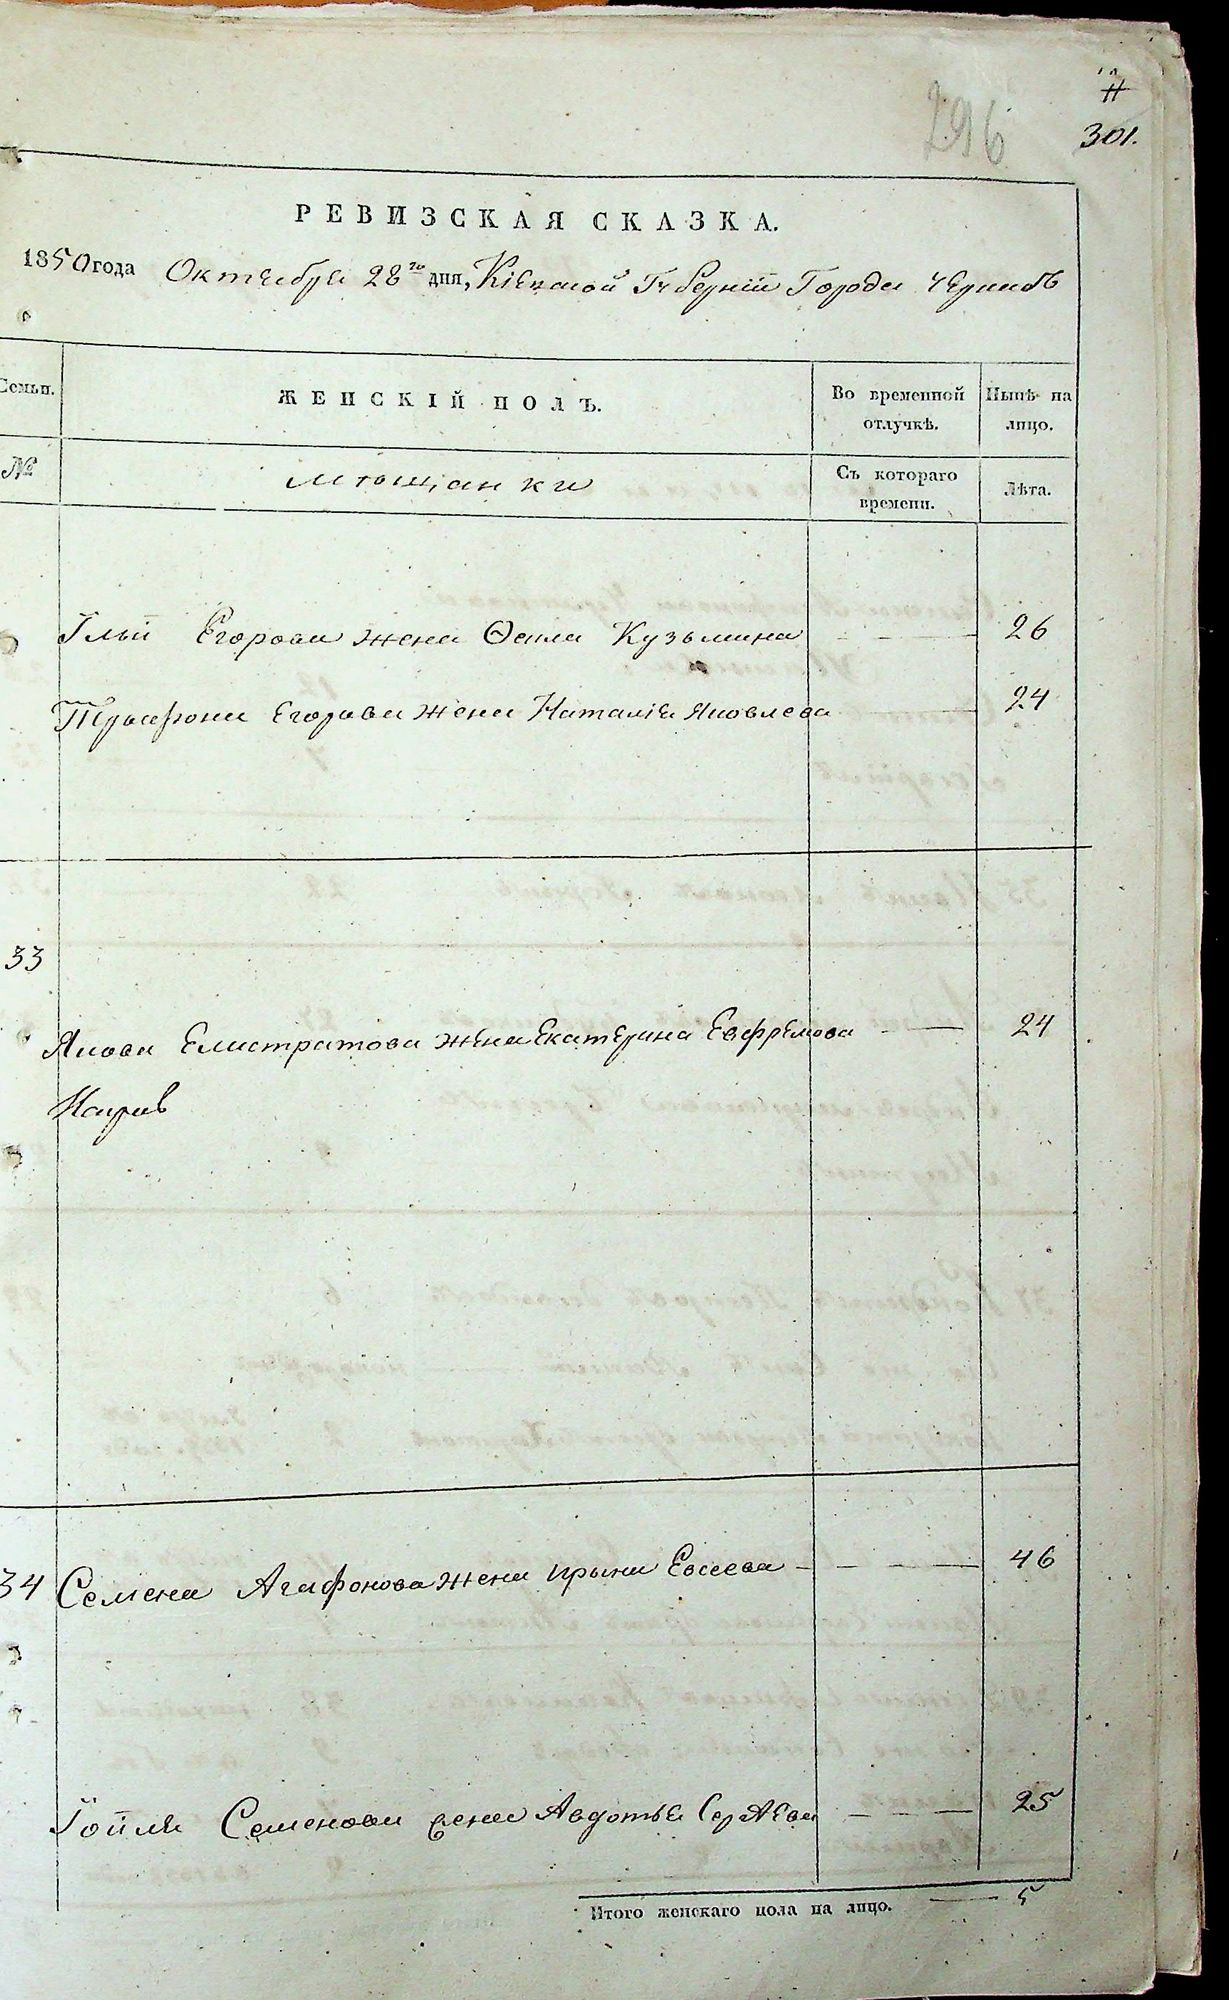 296
11
301.
РЕВИЗСКАЯ СКАЗКА.
1850 года Октября 28 го дня, Кіевской Губерніи Города
Семьи. ЖЕНСКІЙ ПОЛЪ. Во временной отлучкѣ. Нынѣ на лицо.
№ мѣщанки Съ котораго времени. Лѣта.
Егорова жена Ѳекла Кузьмина 26
Егорова жена Наталія Яковлева 24
33
Якова Елистратова жена Екатерина Евфремова 24
34 Семена Агафонова жена Ирына Евсеева 46
Семенова жена Авдотья 25
Итого женскаго пола на лицо. 5